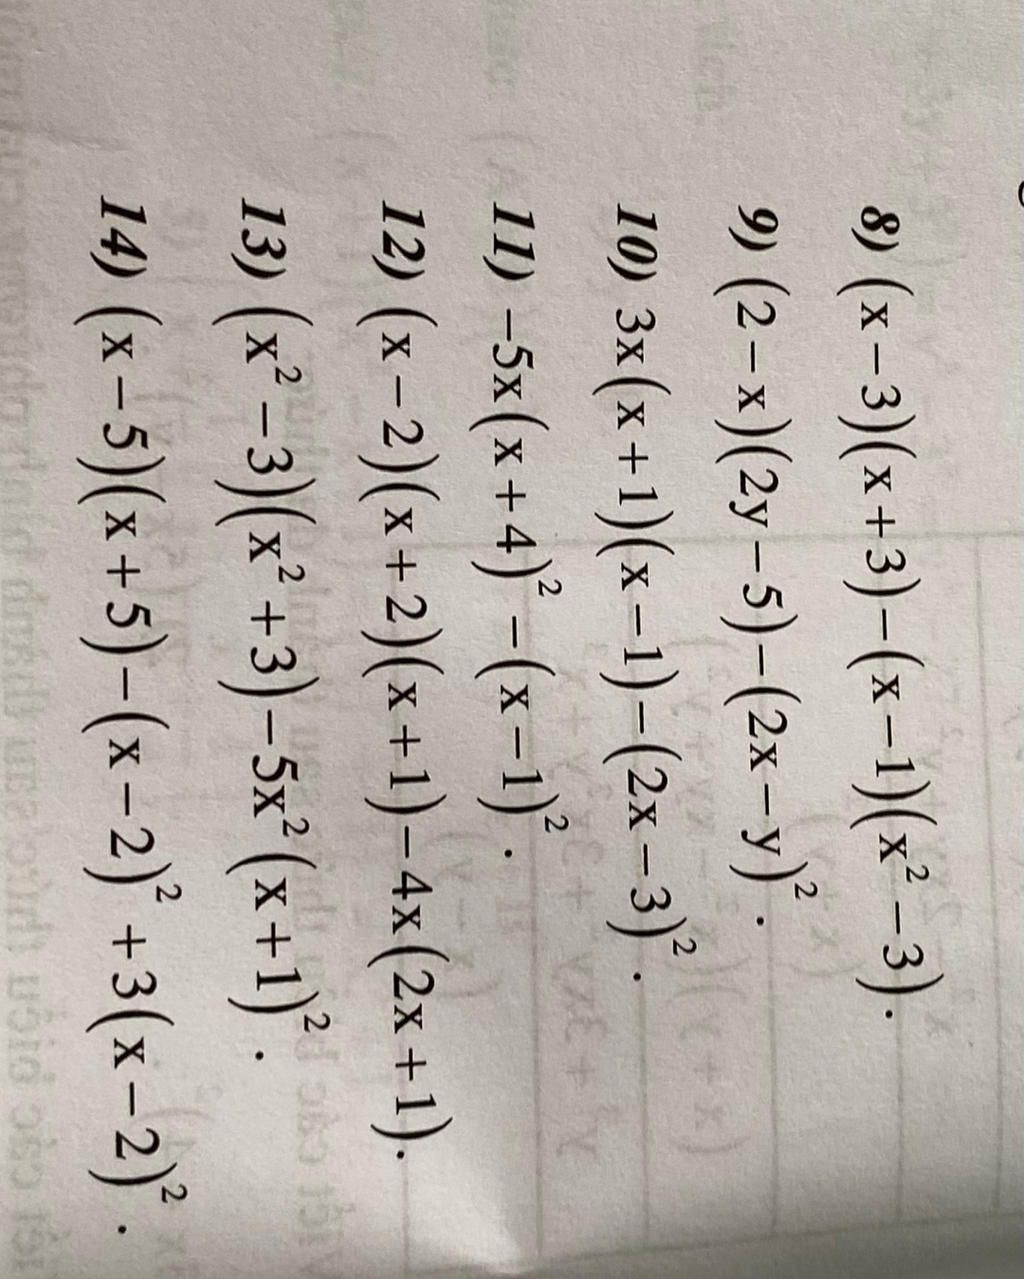 8) (x−3)(x+3)−(x−1)(x²−3).
9) (2−x)(2y−5)−(2x−y)².
10) 3x(x+1)(x−1)−(2x−3)².
11) −5x(x+4)²−(x−1)².
12) (x−2)(x+2)(x+1)−4x(2x+1).
13) (x²−3)(x²+3)−5x²(x+1)².
14) (x−5)(x+5)−(x−2)²+3(x−2)².